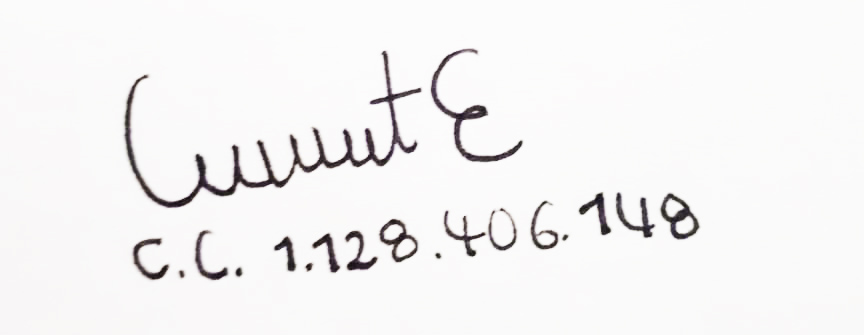 C.C. 1.128.406.148